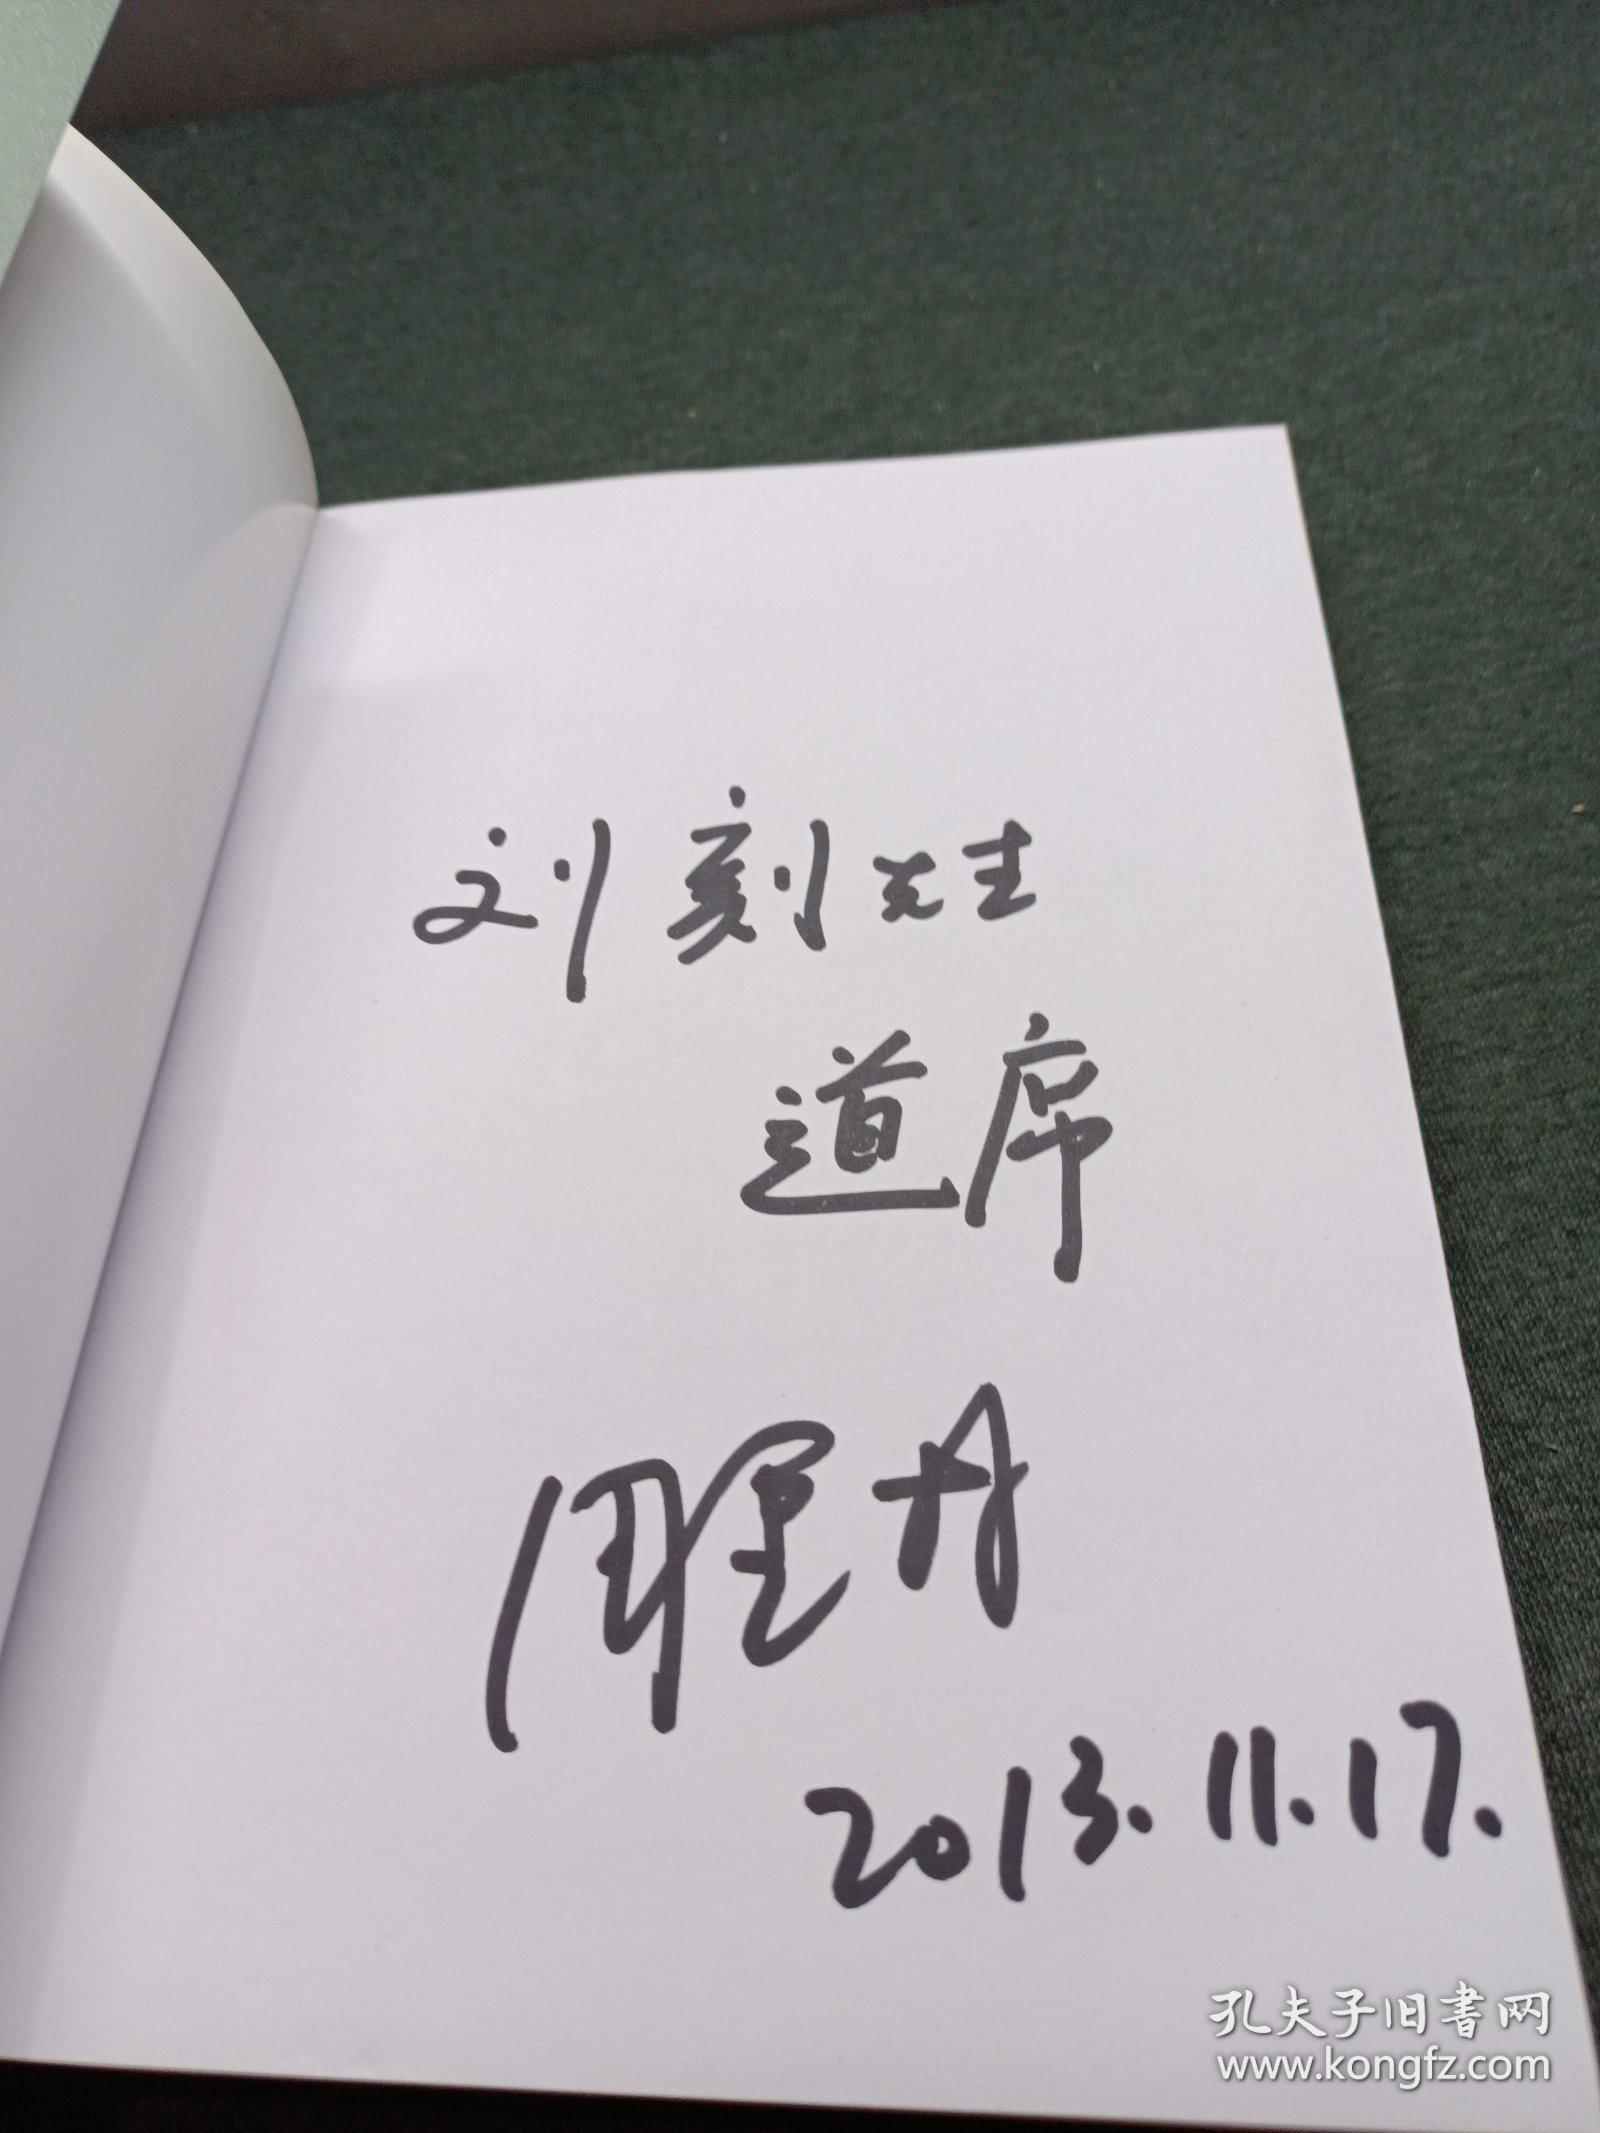 刘刻先生
道席
2013.11.17.
孔夫子旧书网
www.kongfz.com